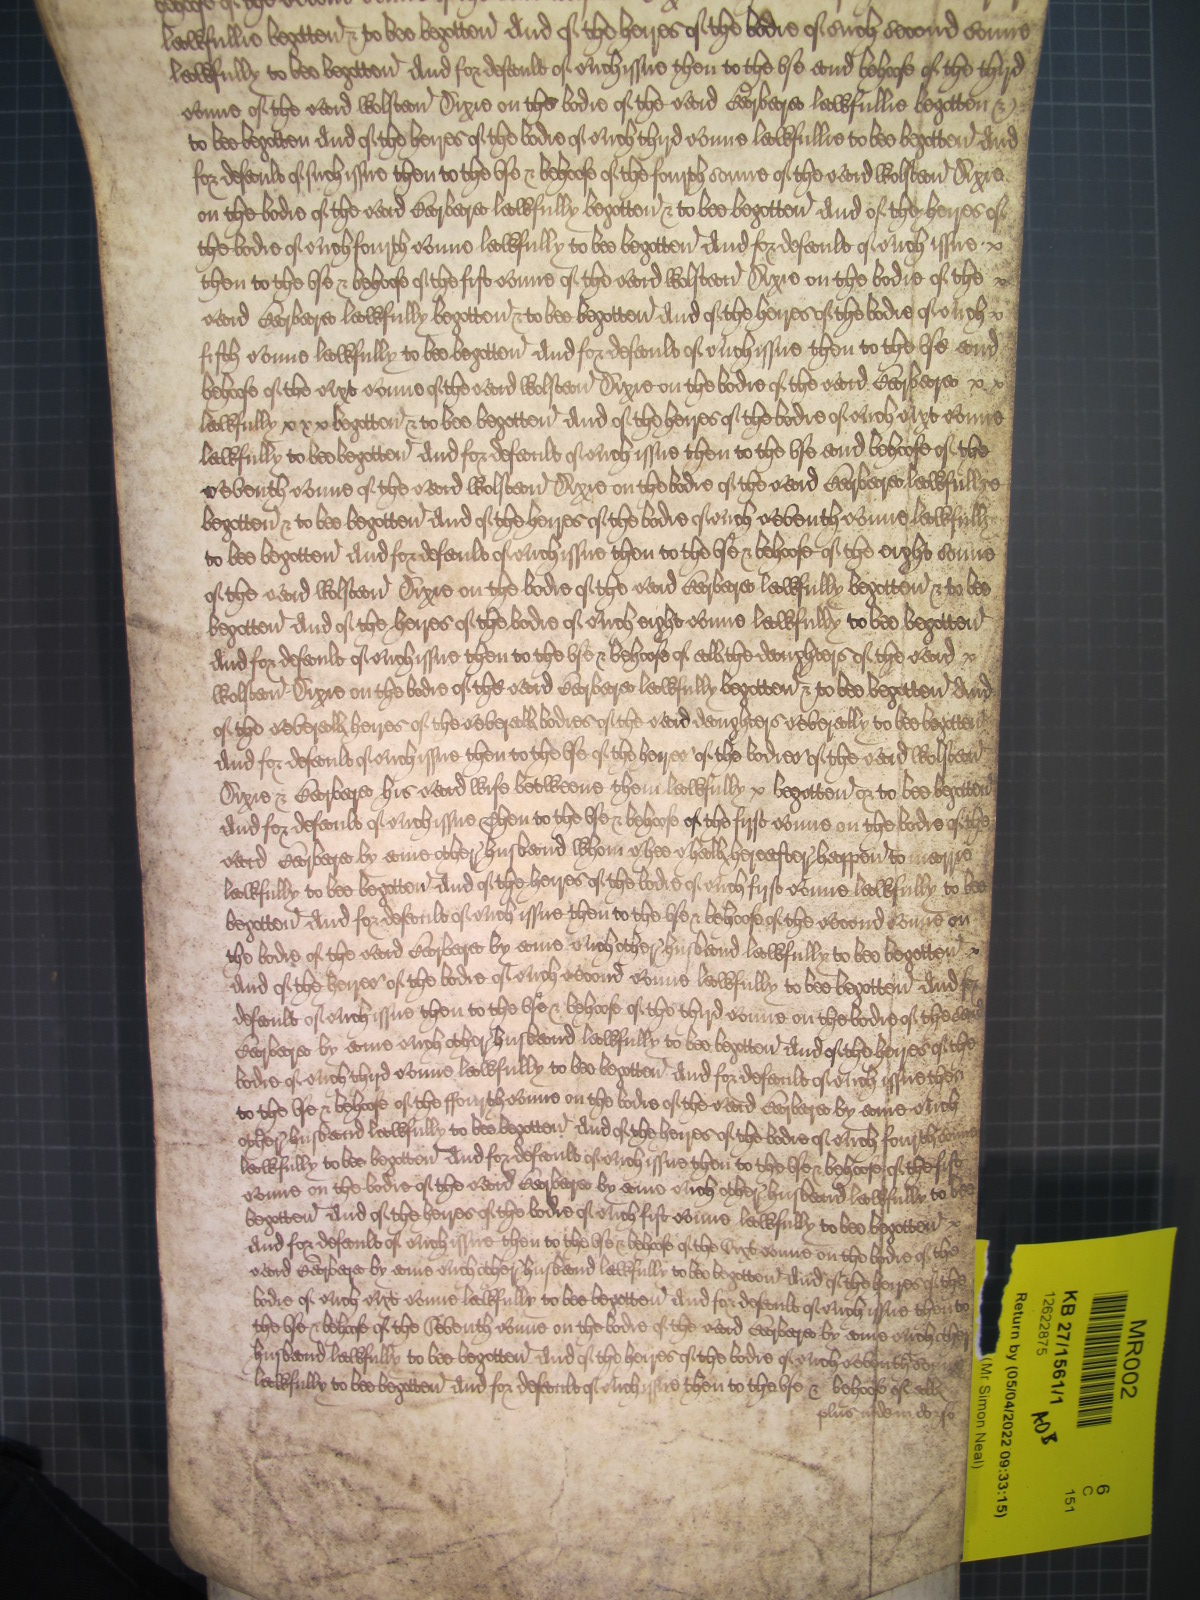 behoofe of the second sonne of the
lawfullie begotten & to bee begotten And of the heires of the bodie of such second sonne
lawfully to bee begotten And for defaulte of such issue then to the vse and behoofe of the third
sonne of the said Wolstan Dixie on the bodie of the said Barbara lawfullie begotten &
to bee begotten And of the heires of the bodie of such third sonne lawfullie to bee begotten And
for defaulte of such issue then to the vse & behoofe of the fourth sonne of the said Wolstan Dixie
on the bodie of the said Barbara lawfully begotten & to bee begotten And of the heires of
the bodie of such fourth sonne lawfully to bee begotten And for defaulte of such issue x
then to the vse & behoofe of the fift sonne of the said Wolstan Dixie on the bodie of the x
said Barbara lawfully begotten & to bee begotten And of the heires of the bodie of such x
fifth sonne lawfully to bee begotten And for defaulte of such issue then to the vse and
behoofe of the sixt sonne of the said Wolstan Dixie on the bodie of the said Barbara x x
lawfully x x x begotten & to bee begotten And of the heires of the bodie of such sixt sonne
lawfully to bee begotten And for defaulte of such issue then to the vse and behoofe of the
seventh sonne of the said Wolstan Dixie on the bodie of the said Barbara lawfullye
begotten & to bee begotten And of the heires of the bodie of such seventh sonne lawfully
to bee begotten And for defaulte of such issue then to the vse & behoofe of the eight sonne
of the said Wolstan Dixie on the bodie of the said Barbara lawfully begotten & to bee
begotten And of the heires of the bodie of such eight sonne lawfully to bee begotten
And for defaulte of such issue then to the vse & behoofe of all the daughters of the said x
Wolstan Dixie on the bodie of the said Barbara lawfully begotten & to bee begotten And
of the severall heires of the severall bodies of the said daughters severally to bee begotten
And for defaulte of such issue then to the vse of the heires of the bodies of the said Wolstan
Dixie & Barbara his said wife betweene them lawfully x begotten or to bee begotten
And for defaulte of such issue Then to the vse & behoofe of the first sonne on the bodie of the
said Barbara by anie other husband whom shee shall hereafter happen to marrie
lawfully to bee begotten And of the heires of the bodie of such first sonne lawfully to bee
begotten And for defaulte of such issue then to the vse & behoofe of the second sonne on
the bodie of the said Barbara by anie such other husband lawfully to bee begotten x
And of the heires of the bodie of such second sonne lawfully to bee begotten And for
defaulte of such issue then to the vse & behoofe of the third sonne on the bodie of the said
Barbara by anie such other husband lawfully to bee begotten And of the heires of the
bodie of such third sonne lawfully to bee begotten And for defaulte of such issue then
to the vse & behoofe of the ffourth sonne on the bodie of the said Barbara by anie such
other husband lawfully to bee begotten And of the heires of the bodie of such fourth sonne
lawfully to bee begotten And for defaulte of such issue then to the vse & behoofe of the fift
sonne on the bodie of the said Barbara by anie such other husband lawfully to bee
begotten And of the heires of the bodie of such fift sonne lawfully to bee begotten x
And for defaulte of such issue then to the vse & behoofe of the Sixt sonne on the bodie of the
said Barbara by anie such other husband lawfully to bee begotten And of the heires of the
bodie of such sixt sonne lawfully to bee begotten And for defaulte of such issue then to
the vse & behoofe of the Seventh sonne on the bodie of the said Barbara by anie such other
husband lawfully to bee begotten And of the heires of the bodie of such seventh sonne
lawfully to bee begotten And for defaulte of such issue then to the vse & behoofe of all
plus inde in dorso
MR002
KB 27/1561/1
12622875
AOB
Return by (05/04/2022 09:33:15)
(Mr Simon Neal)
6
C
151